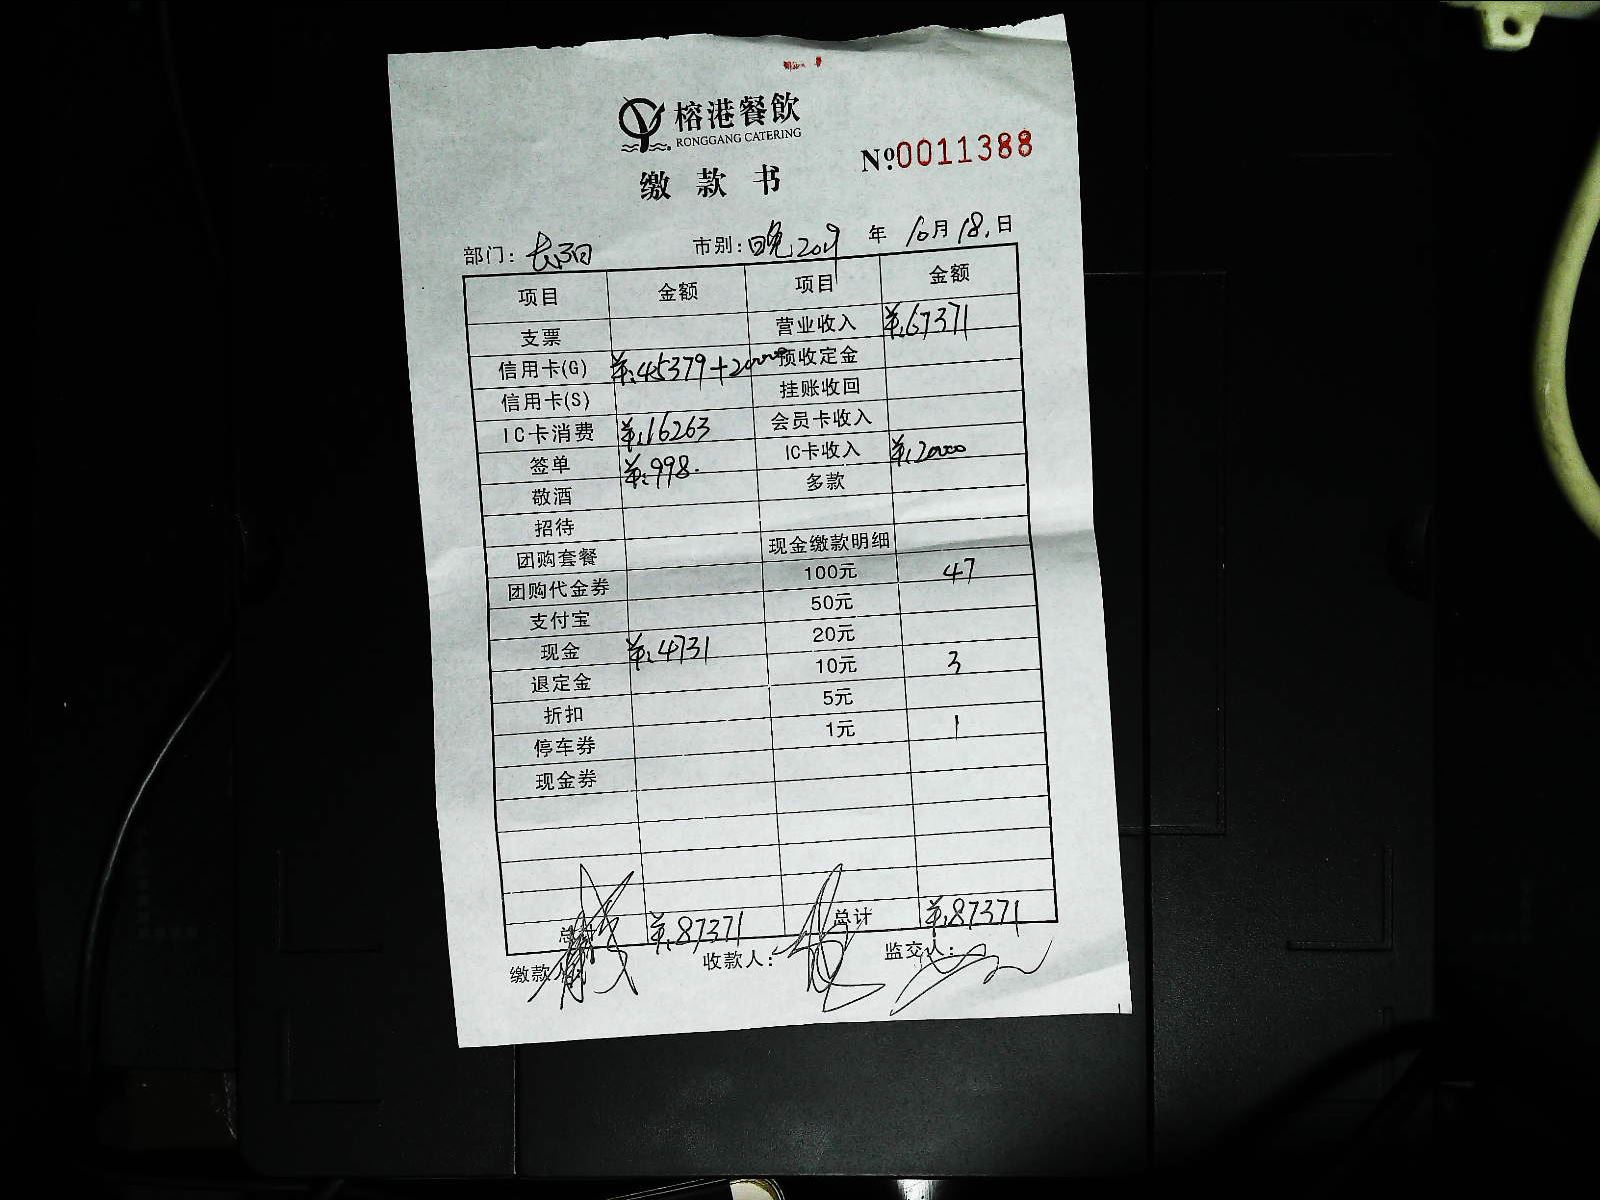 榕港餐飲
RONGGANG CATERING
缴款书
№0011388
部门: 市别: 晚 2019 年 10月 18日
项目 金额 项目 金额
支票 营业收入 ¥:67371
信用卡(G) ¥:45379+20000 预收定金
信用卡(S) 挂账收回
IC卡消费 ¥:16263 会员卡收入
签单 ¥:998. IC卡收入 ¥:20000
敬酒 多款
招待
团购套餐 现金缴款明细
团购代金券 100元 47
支付宝 50元
现金 ¥:4731 20元
退定金 10元 3
折扣 5元
停车券 1元 1
现金券
总 ¥:87371 总计 ¥:87371
缴款 收款人: 监交人: